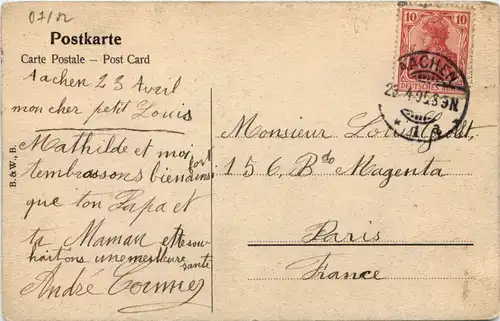 07/02
Postkarte
Carte Postale – Post Card
Aachen 23 Avril
mon cher petit Louis
Mathilde et moi
t'embrassons bien fort ainsi
que ton Papa et
ta Maman et te sou-
haitons une meilleure
santé
André
B. & W., B.
10 10
DEUTSCHES REICH
AACHEN
23.4.05.8-9N.
* 1
Monsieur Louis
156, Bd Magenta
Paris
France